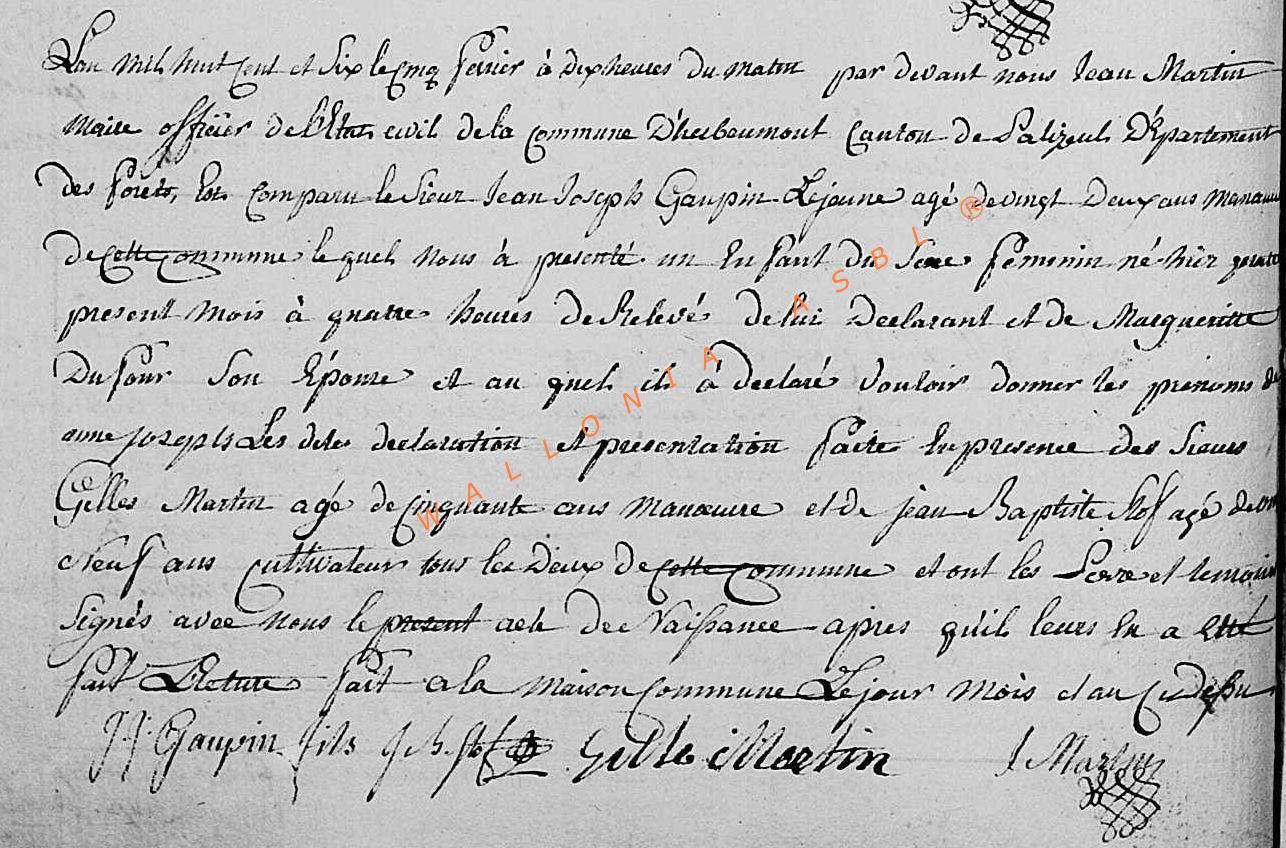 L'an mil huit cent et six le cinq fevrier à dix heures du matin par devant nous Jean Martin
Maire officier de l'Etat civil de la commune D'herbeumont Canton de Palizeul Département
des forets, Est comparu le Sieur Jean Joseph Gaupin Lejeune agé de vingt Deux ans manœuv
de cette commune lequel nous à presenté un Enfant du Sexe feminin né hier quatre
present mois à quatre heures de Relevé de lui Declarant et de Margueritte
Dufour Son Épouse et au quel ils à declaré vouloir donner les prenoms de
anne joseph Les dites declaration et presentation faite En presence des Sieurs
Gilles Martin agé de cinquante ans manœuvre et de jean Baptiste Slof agé de
Neuf ans cultivateur tous les Deux de cette commune et ont les Perre et temoin
Signés avec nous le present acte de Naissance apres qu'il leurs En a etté
fait Lecture fait a la maison commune Le jour mois et an Ci desu
JJ. Gaupin fils J b Slof Gille Martin J Martin
WALLONIA ASBL ®